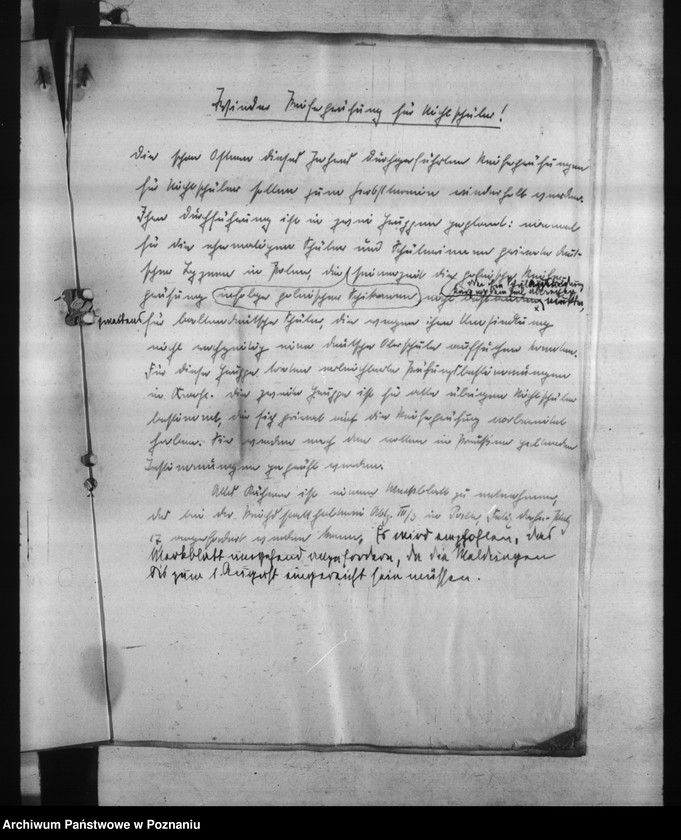 Wieder Reifeprüfung für Nichtschüler!
Die schon Ostern dieses Jahres durchgeführten Reifeprüfungen
für Nichtschüler sollen zum Herbsttermin wiederholt werden.
Ihre Durchführung ist in zwei Gruppen geplant: einmal
für die ehemaligen Schüler und Schülerinnen privater deut-
scher Lyzeen in Polen, die seinerzeit die polnische Reife-
prüfung infolge polnischer Schikanen nicht
für baltendeutsche Schüler, die wegen ihrer Umsiedlung
nicht rechtzeitig eine deutsche Oberschule aufsuchen konnten.
Für diese Gruppe treten erleichterte Prüfungsbestimmungen
in Kraft. Die zweite Gruppe ist für alle übrigen Nichtschüler
bestimmt, die sich privat auf die Reifeprüfung vorbereitet
haben. Sie werden nach den vollen in Preußen geltenden
Bestimmungen geprüft werden.
Alles Nähere ist einem Merkblatt zu entnehmen,
das bei der Reichsstatthalterei Abt. III/3 in Posen,
17 angefordert werden kann. Es wird empfohlen, das
Merkblatt umgehend anzufordern, da die Meldungen
bis zum 1. August eingereicht sein müssen.
Archiwum Państwowe w Poznaniu